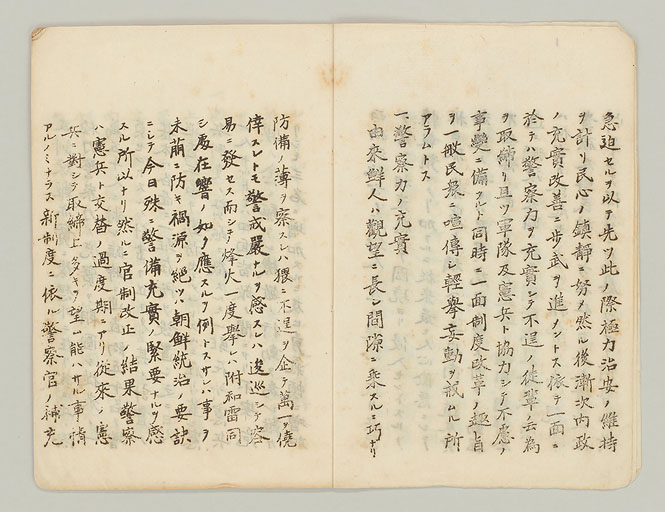 急迫セルヲ以テ先ツ此ノ際極力治安ノ維持
ヲ計リ民心ノ鎮靜ニ努メ然ル後漸次内政
ノ充實改善ニ步武ヲ進メントス依テ一面ニ
於テハ警察力ヲ充實シテ不逞ノ徒輩ノ云為
ヲ取締リ且ツ軍隊及憲兵ト協力シテ不慮ノ
事變ニ備フルト同時ニ一面制度改革ノ趣旨
ヲ一般民衆ニ喧傳シ輕擧妄動ヲ戒ムル所
アラムトス
一、警察力ノ充實
由來鮮人ハ觀望ニ長シ間隙ニ乘スルニ巧ナリ
防備ノ薄ヲ察スレハ猥ニ不逞ヲ企テ萬一ヲ僥
倖スレトモ警戒嚴ナルヲ感スレハ逡巡シテ容
易ニ發セス而シテ烽火一度擧レハ附和雷同
シ處在響ノ如ク應スルヲ例トスサレハ事ヲ
未萠ニ防キ禍源ヲ絕ツハ朝鮮統治ノ要訣
ニシテ今日殊ニ警備充實ノ緊要ナルヲ感
スル所以ナリ然ルニ官制改正ノ結果警察
ハ憲兵ト交替ノ過度期ニアリ從來ノ憲
兵ニ對シテ取締上多キヲ望ム能ハサル事情
アルノミナラス新制度ニ依ル警察官ノ補充